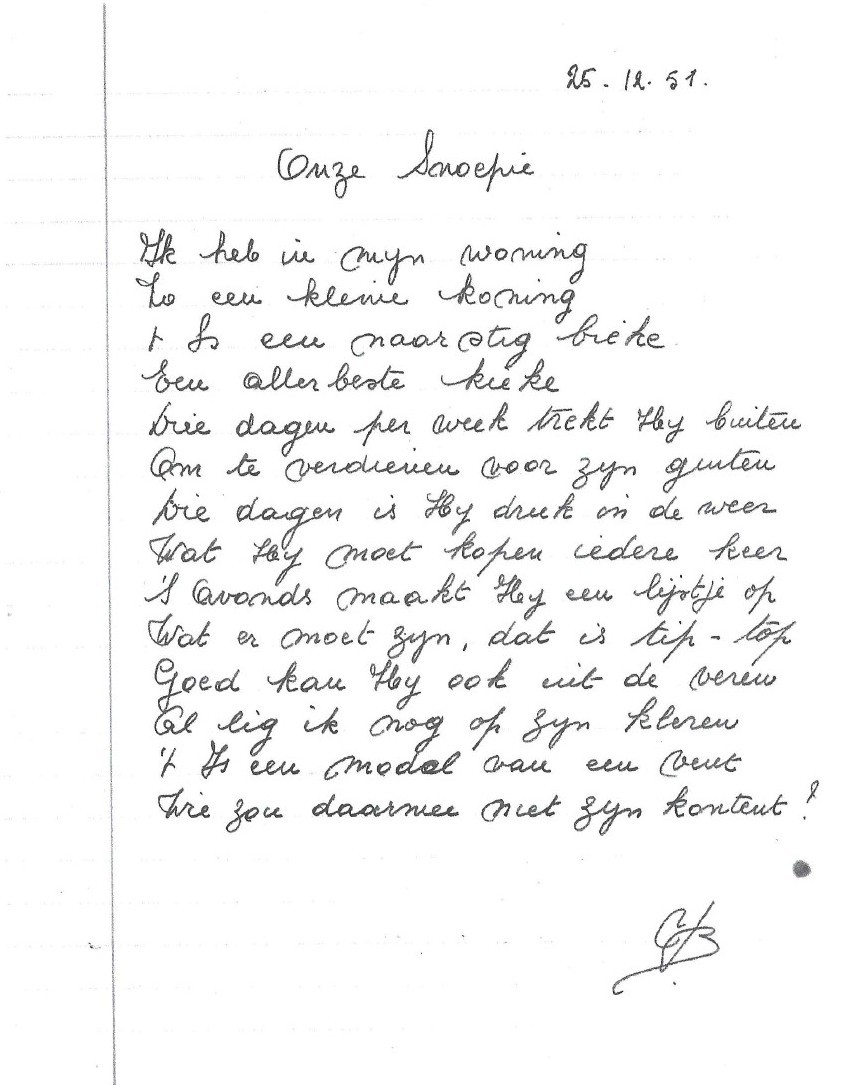 25. 12. 51.
Onze Snoepie
Ik heb in myn woning
Zo een kleine koning
t Is een naarstig bieke
Een allerbeste kieke
Drie dagen per week trekt Hy buiten
Om te verdienen voor zyn guiten
Drie dagen is Hy druk in de weer
Wat Hy moet kopen iedere keer
'S Avonds maakt Hy een lijstje op
Wat er moet zyn, dat is tip-top
Goed kan Hy ook uit de veren
Al lig ik nog op zyn kleren
't Is een model van een vent
Wie zou daarmee niet zyn kontent?